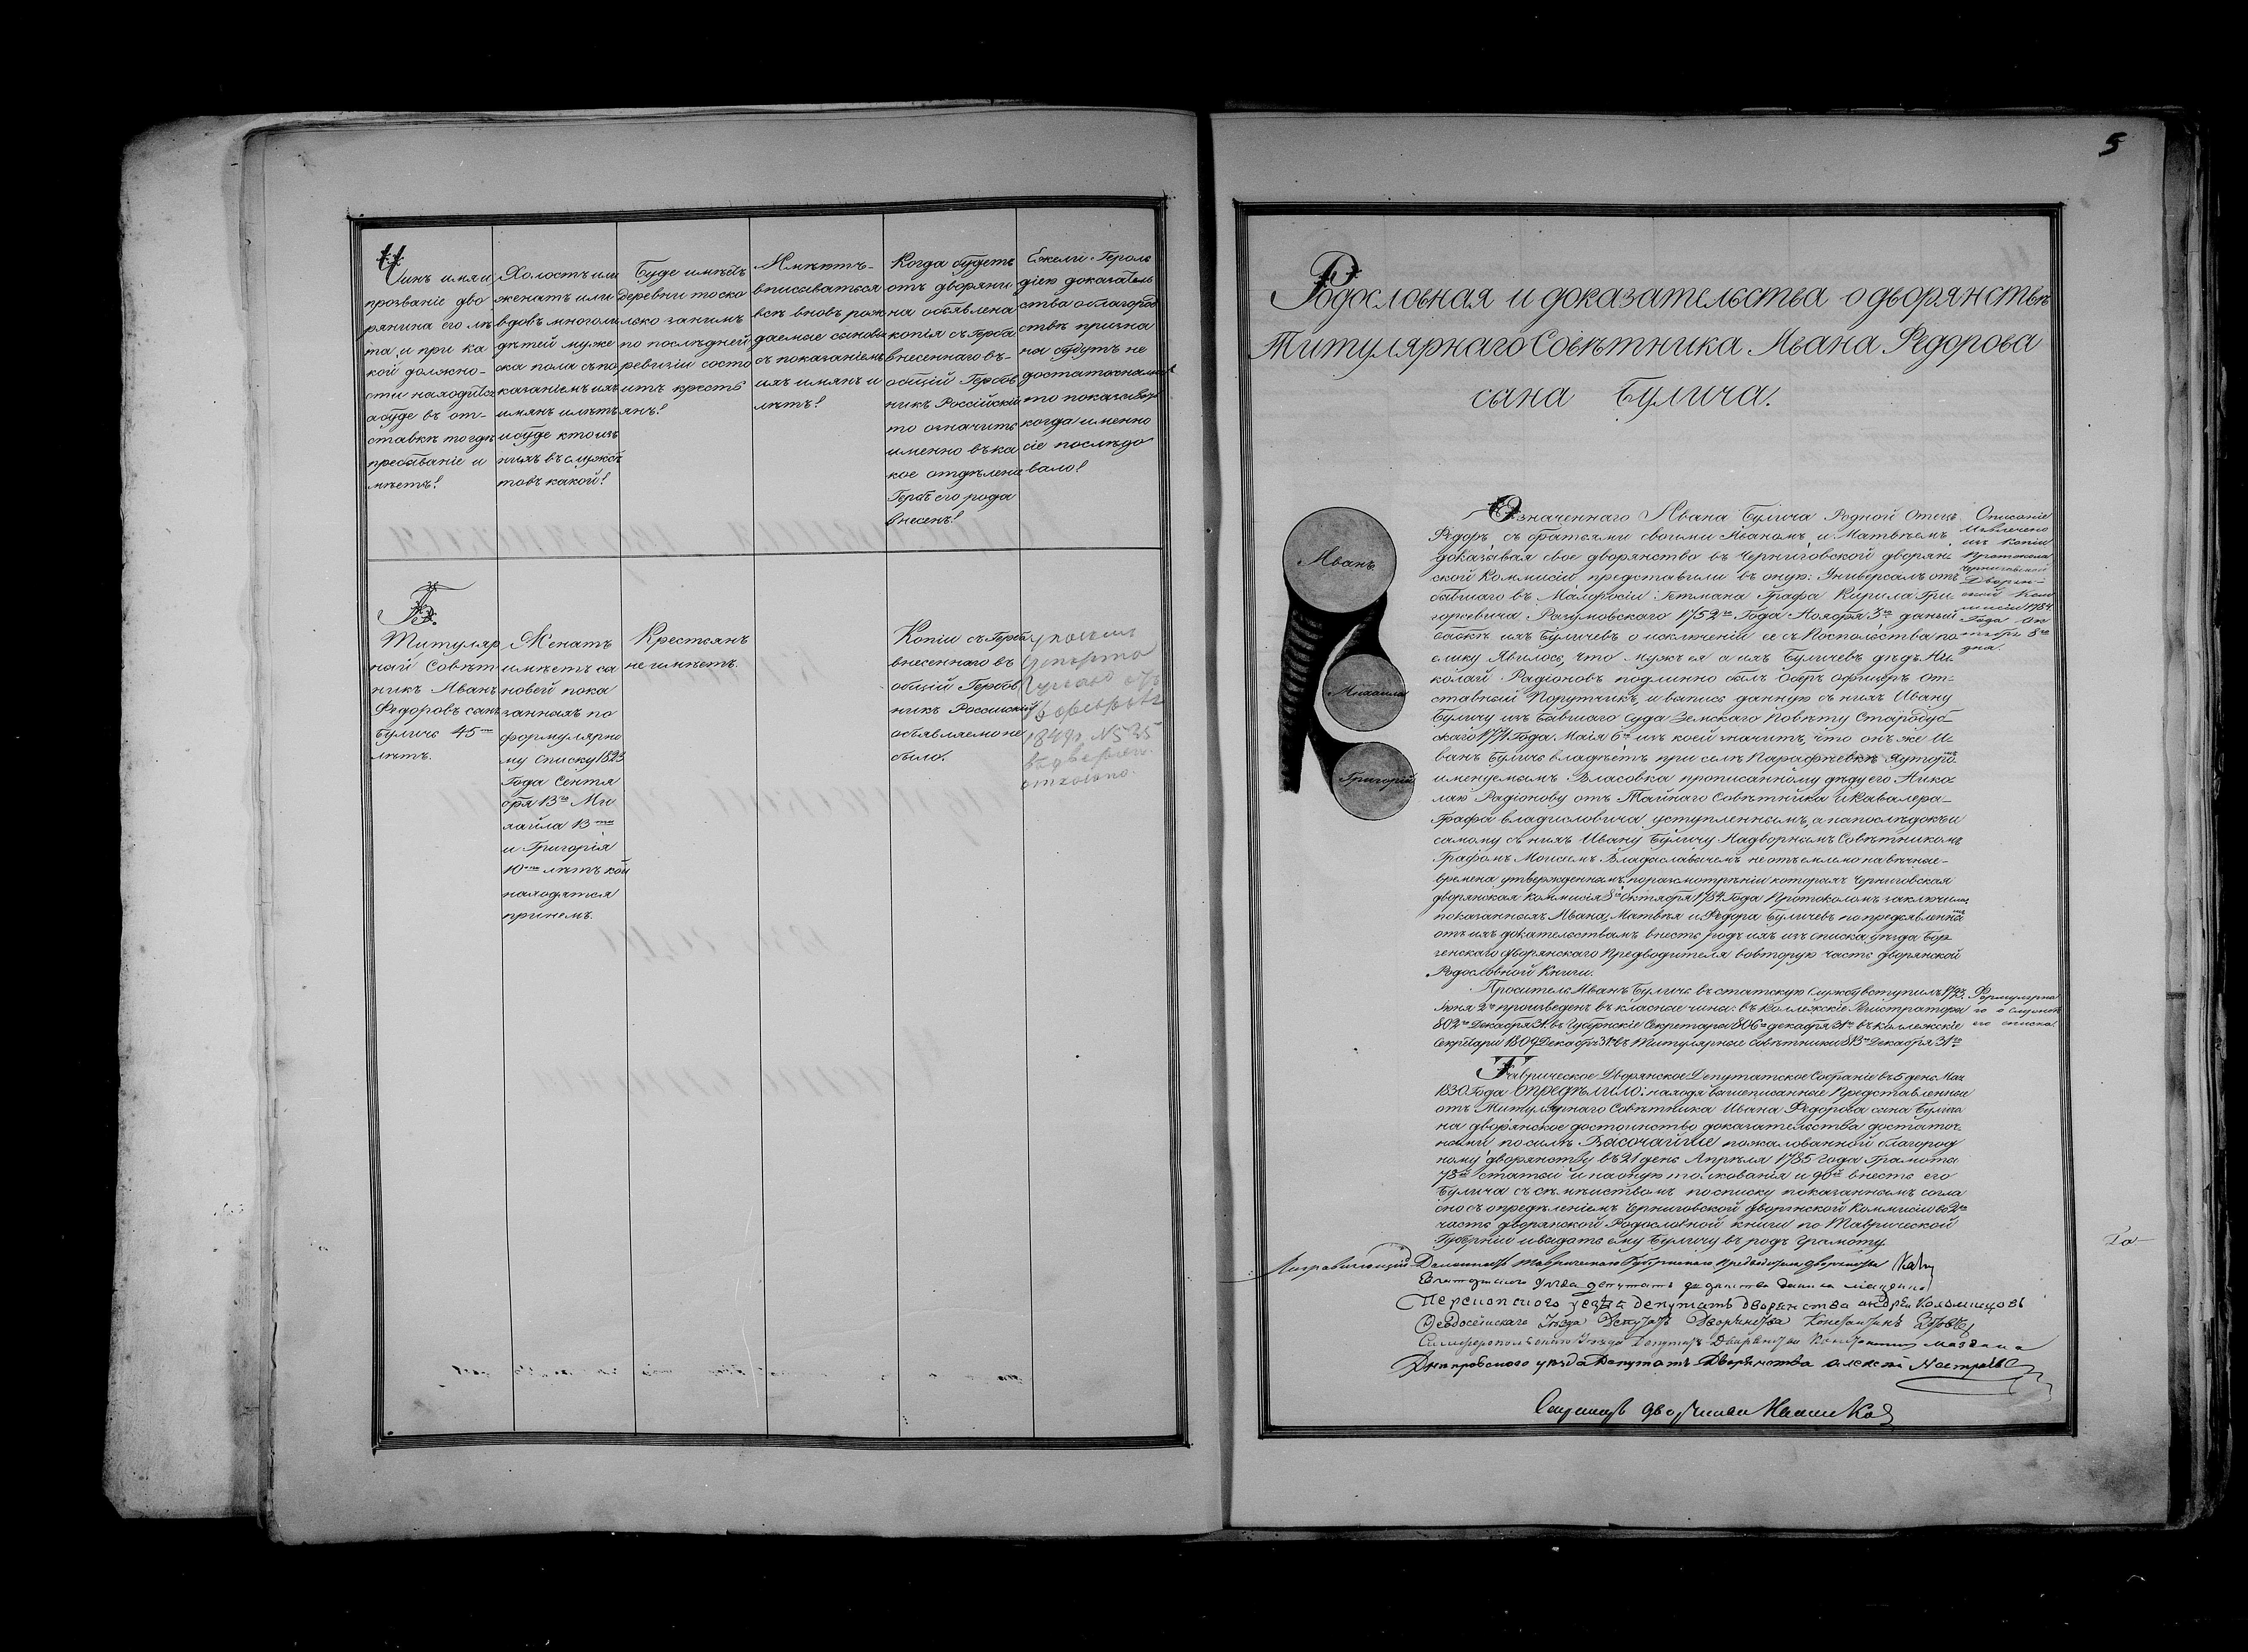 Чинъ имя и
прозваніе дво
рянина его лѣ
та и при ка
кой должно-
сти находится
а буде въ от-
ставкѣ то гдѣ
пребываніе и
мѣетъ!
Холостъ или
женатъ или
вдовъ многоли
дѣтей муже
ска пола съ по
казаніемъ ихъ
имянъ и лѣтъ
и буде кто изъ
нихъ въ службѣ
то въ какой!
Буде имѣетъ
деревни то ско
лько за нимъ
по послѣдней
ревизіи состо
итъ кресть
янъ!
Имѣютъ-
вписываться
всѣ вновь рож
даемые сыновья
съ показаніемъ
ихъ имянъ и
лѣтъ!
Когда будетъ
отъ дворяни
на объявлена
копія съ Герба
внесеннаго въ-
общій Гербов
никъ Россійскій
то означить
именно въ ка
кое отдѣлена
Гербъ его рода
внесенъ!
Ежели Героль
діею доказатель
ства о благород
ствѣ призна
ны будутъ не
достаточными
то показывать
когда именно
сіе послѣдо
вало!
Б.
Титуляр
ный Совѣт
никъ Иванъ
Федоровъ сынъ
Буличь 45
лѣтъ.
Женатъ
имѣетъ сы
новей пока
занныхъ по
формулярно
му списку 1823
Года Сентя
бря 13го Ми
хайла 13ти
и Григорія
10ти лѣтъ кои
находятся
при немъ.
Крестьянъ
не имѣетъ.
Копіи съ Герба
внесеннаго въ
общій Гербов
никъ Россійскій
объявляемо не
было.
1844 № 535
5
Родословная и доказательства о дворянствѣ
Титулярнаго Совѣтника Ивана Федорова
сына Булича.
Иванъ
Михаила
Григорій
Означеннаго Ивана Булича Родной Отецъ
Федоръ съ братьями своими Иваномъ и Матвѣемъ
доказывая свое дворянство въ Черниговской дворян-
ской Коммисіи представили въ оную: Универсалъ отъ
бывшаго въ Малоросіи Гетмана Графа Кирила Гри
горьевича Разумовскаго 1752го Года Ноября 3го даный
бабкѣ ихъ Буличевъ о исключеніи ее съ Поспольства по
елику явилось, что мужъ ея а ихъ Буличевъ дѣдъ Ни
колай Радіоновъ подлинно былъ Оберъ офицеръ от-
ставный Порутчикъ, и выпись данную съ нихъ Ивану
Буличу изъ бывшаго Суда Земскаго Повѣту Стародуб
скаго 1771 Года Маія 6го изъ коей значитъ, что онъ же И-
ванъ Буличь владѣетъ при селѣ Парафѣевкѣ хуторо
именуемымъ Власовка прописанному дѣду его Нико
лаю Радіонову отъ Тайнаго Совѣтника и Кавалера-
Графа Владисловича уступленнымъ, а напослѣдокъ и
самому съ нихъ Ивану Буличу Надворнымъ Совѣтникомъ
Графомъ Моисеемъ Владославичемъ неотъемлемо на вѣчные-
времена утвержденнымъ. по разсмотрѣніи которыхъ Черниговская
дворянская Коммисія 8й Октября 1784 Года Протоколомъ заключила
показанныхъ Ивана, Матвѣя и Федора Буличевъ по предъявленны
отъ ихъ докательствамъ внесть родъ ихъ изъ списка уѣзда Бор
зенскаго дворянскаго Предводителя вовторую часть дворянской
Родословной Книги.
Описаніе
Извлечено
изъ копіи
Протокола
Черниговской
Дворян-
ской Ком
мисіи 1784
Года Ок
тября 8го
дня.
Проситель Иванъ Буличь въ статскую службу вступилъ
Іюня 2го произведенъ въ класные чины: въ Коллежскіе Регистраторы
802го Декабря 31. въ Губернскіе Секретари 806го декабря 31го въ коллежскіе
Секретари 1809 Декабря 31го въ Титулярные совѣтники 813го Декабря 31го
Формулярна
го о службѣ
его списка.
Таврическое Дворянское Депутатское Собраніе въ 5 день Мая
1830 Года опредѣлило: находя вышеписанные Представленные
отъ Титулярнаго Совѣтника Ивана Федорова сына Булича
на дворянское достоинство доказательства достаточ-
ными по силѣ Высочайше пожалованной благород
ному дворянству въ 21 день Апрѣля 1785 года Грамоты
78й статьи и на оную толкованія и 90й внесть его
Булича съ семѣйствомъ по списку показаннымъ согла
сно съ опредѣленіемъ Черниговской дворянской Коммисіи во 2ю
часть дворянской Родословной книги по Таврической
Губерніи и выдать ему Буличу въ родъ грамоту.
Исправляющій Должность Таврическаго Губернскаго Предводителя дворянства
уѣзда депутатъ дворянства
Перекопского уезда депутатъ дворянства андрѣй Коломийцовъ
Феодосійскаго Уѣзда Депутатъ Дворянства Константинъ
Симферопольскаго Уѣзда Депутатъ Дворянства
Днепровского уезда Депутатъ Дворянства алексѣй
Секретарь дворянства